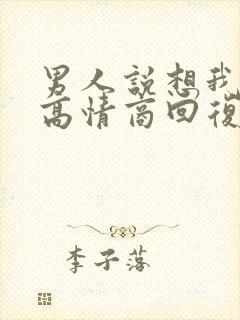 男人説想我
高情商回復
李子落